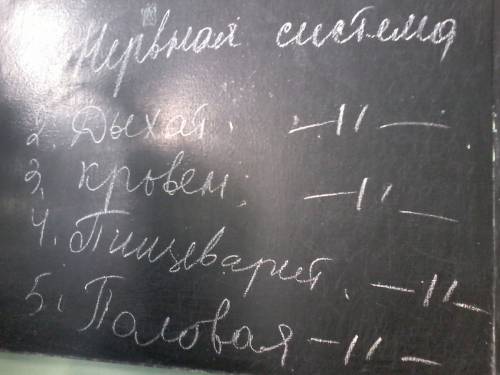 Нервная система
2. Дыхат. —11—
3. Кровен. —11—
4. Пищеварит. —11—
5. Половая —11—